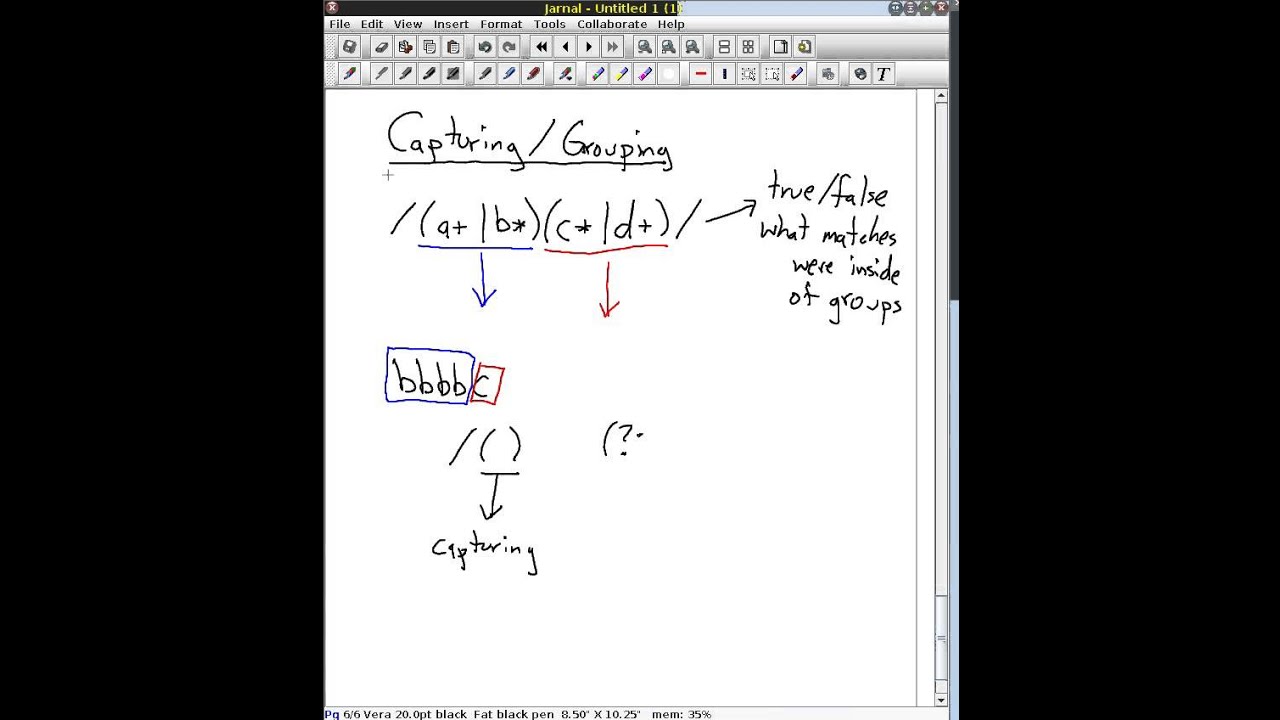 Jarnal - Untitled 1 (1)
File Edit View Insert Format Tools Collaborate Help
T
Capturing / Grouping
/(a+|b*)(c*|d+)/
true/false
what matches
were inside
of groups
bbbbc
/( ) (?·
capturing
Pg 6/6 Vera 20.0pt black Fat black pen 8.50" X 10.25" mem: 35%